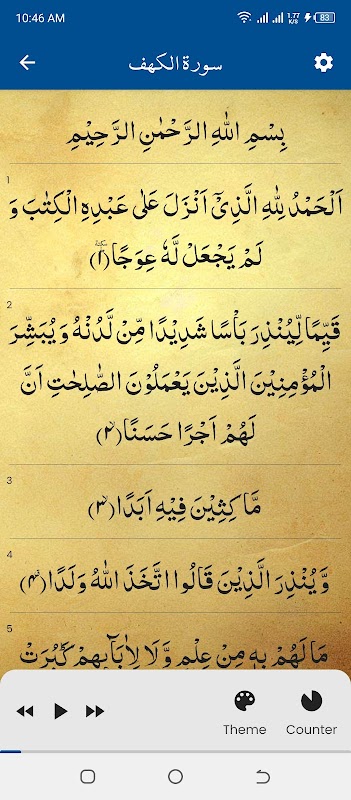 10:46 AM 1.77 K/s 83
سورة الكهف
بِسْمِ اللهِ الرَّحْمٰنِ الرَّحِيْمِ
1
اَلْحَمْدُ لِلّٰهِ الَّذِيْۤ اَنْزَلَ عَلٰى عَبْدِهِ الْكِتٰبَ وَ
لَمْ يَجْعَلْ لَّهٗ عِوَجًا(۱)
2
قَيِّمًا لِّيُنْذِرَ بَاْسًا شَدِيْدًا مِّنْ لَّدُنْهُ وَ يُبَشِّرَ
الْمُؤْمِنِيْنَ الَّذِيْنَ يَعْمَلُوْنَ الصّٰلِحٰتِ اَنَّ
لَهُمْ اَجْرًا حَسَنًا(۲)
3
مَّاكِثِيْنَ فِيْهِ اَبَدًا(۳)
4
وَّ يُنْذِرَ الَّذِيْنَ قَالُوا اتَّخَذَ اللهُ وَلَدًا(۴)
5
مَا لَهُمْ بِهٖ مِنْ عِلْمٍ وَّ لَا لِاٰبَآىٕهِمْ كَبُرَتْ
Theme Counter